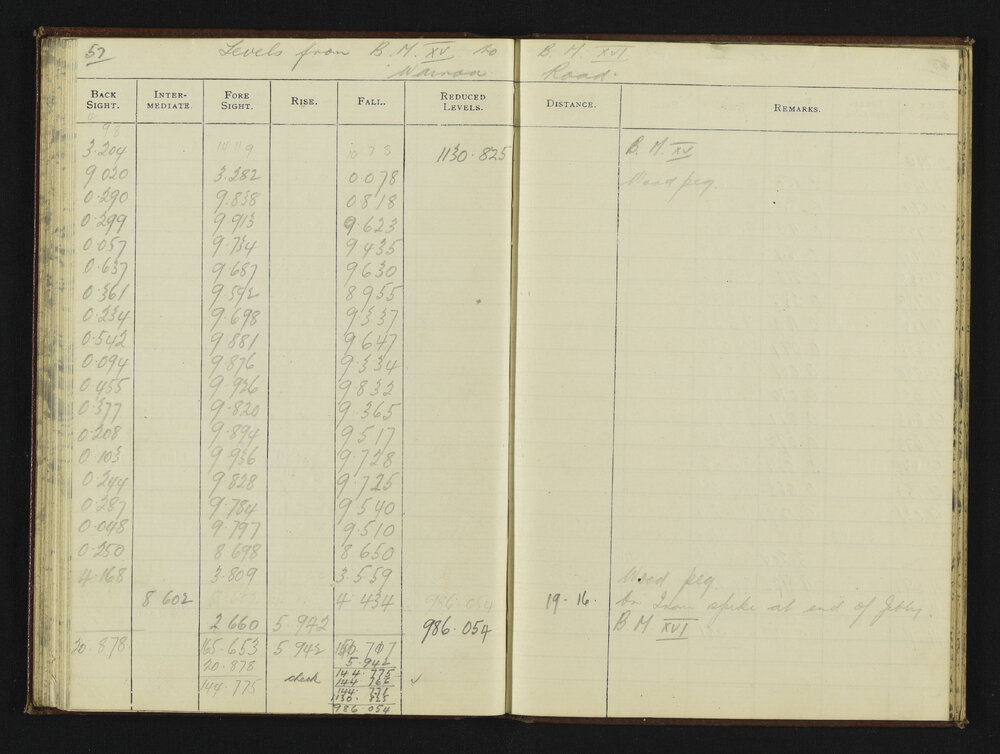 52 Levels from B. M. XV to B. M. XVI
Road.
BACK SIGHT. INTER-MEDIATE. FORE SIGHT. RISE. FALL. REDUCED LEVELS. DISTANCE. REMARKS.
3.204 1130.825 B. M XV
9 020 3.282 0.078 Wood peg.
0.290 9.838 0.818
0.299 9.913 9.623
0.057 9.734 9.435
0.637 9.687 9.630
0.361 9.592 8955
0.234 9.698 9.337
0.542 9.881 9.647
0.094 9.876 9.334
0.455 9.926 9832
0.377 9.820 9.365
0.208 9.894 9.517
0.103 9.936 9.728
0.244 9.828 9.725
0.287 9.784 9.540
0.048 9.797 9.510
0.250 8 698 8 650
4.168 3.809 3.559 Wood peg
8 602 4.434 986.054 19-16. on Iron spike at end of Jetty.
2 660 5.942 986.054 B M XVI
20.878 165.653 5 942 707
20.878 5.942
144.775 check 144.775
144
1130. 825
986 054